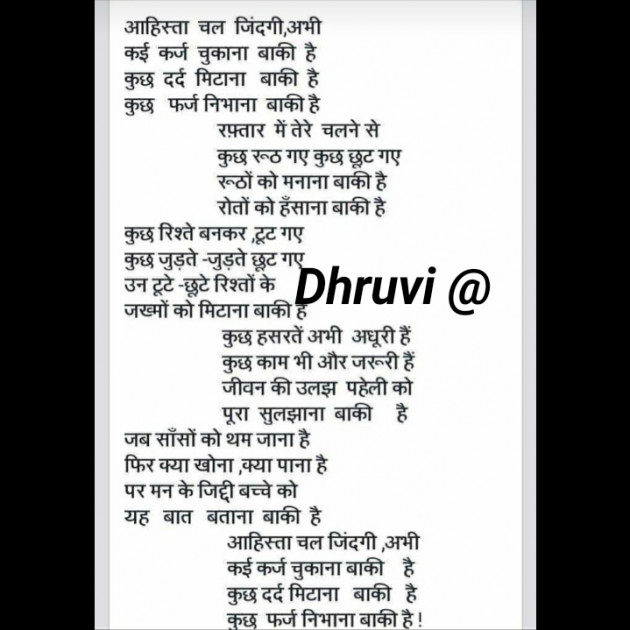 आहिस्ता चल जिंदगी,अभी
कई कर्ज चुकाना बाकी है
कुछ दर्द मिटाना बाकी है
कुछ फर्ज निभाना बाकी है
रफ़्तार में तेरे चलने से
कुछ रूठ गए कुछ छूट गए
रूठों को मनाना बाकी है
रोतों को हँसाना बाकी है
कुछ रिश्ते बनकर ,टूट गए
कुछ जुड़ते -जुड़ते छूट गए
उन टूटे -छूटे रिश्तों के
Dhruvi @
जख्मों को मिटाना बाकी है
कुछ हसरतें अभी अधूरी हैं
कुछ काम भी और जरूरी हैं
जीवन की उलझ पहेली को
पूरा सुलझाना बाकी है
जब साँसों को थम जाना है
फिर क्या खोना ,क्या पाना है
पर मन के जिद्दी बच्चे को
यह बात बताना बाकी है
आहिस्ता चल जिंदगी ,अभी
कई कर्ज चुकाना बाकी है
कुछ दर्द मिटाना बाकी है
कुछ फर्ज निभाना बाकी है !